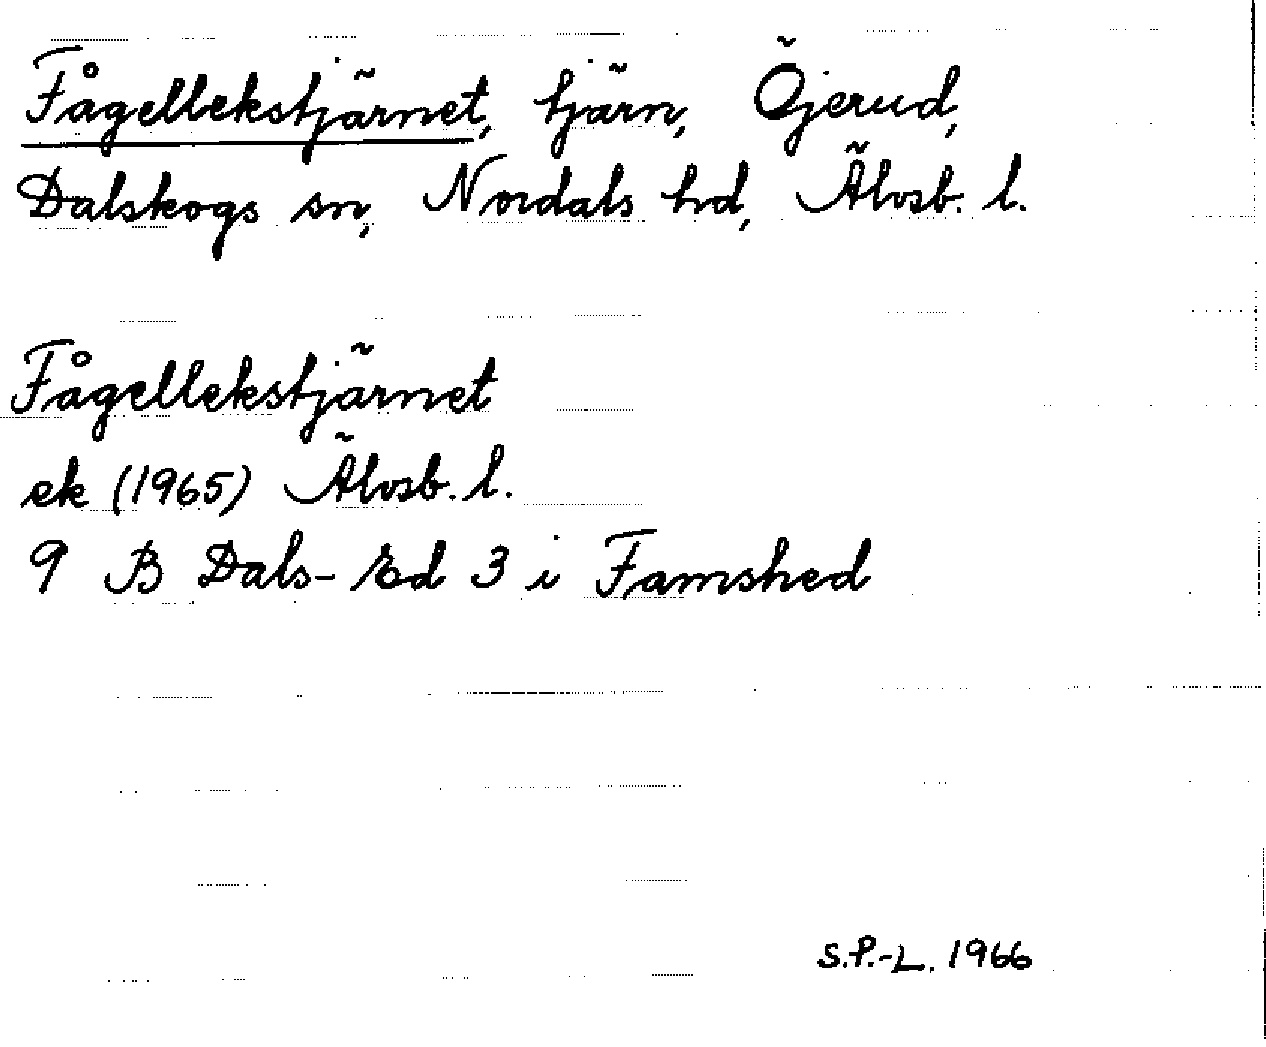 Fågellekstjärnet, tjärn, Öjerud,
Dalskogs sn, Nordals hd, Älvsb. l.
Fågellekstjärnet
ek (1965) Älvsb. l.
9 B Dals-Ed 3 i Famshed
S.P.-L. 1966